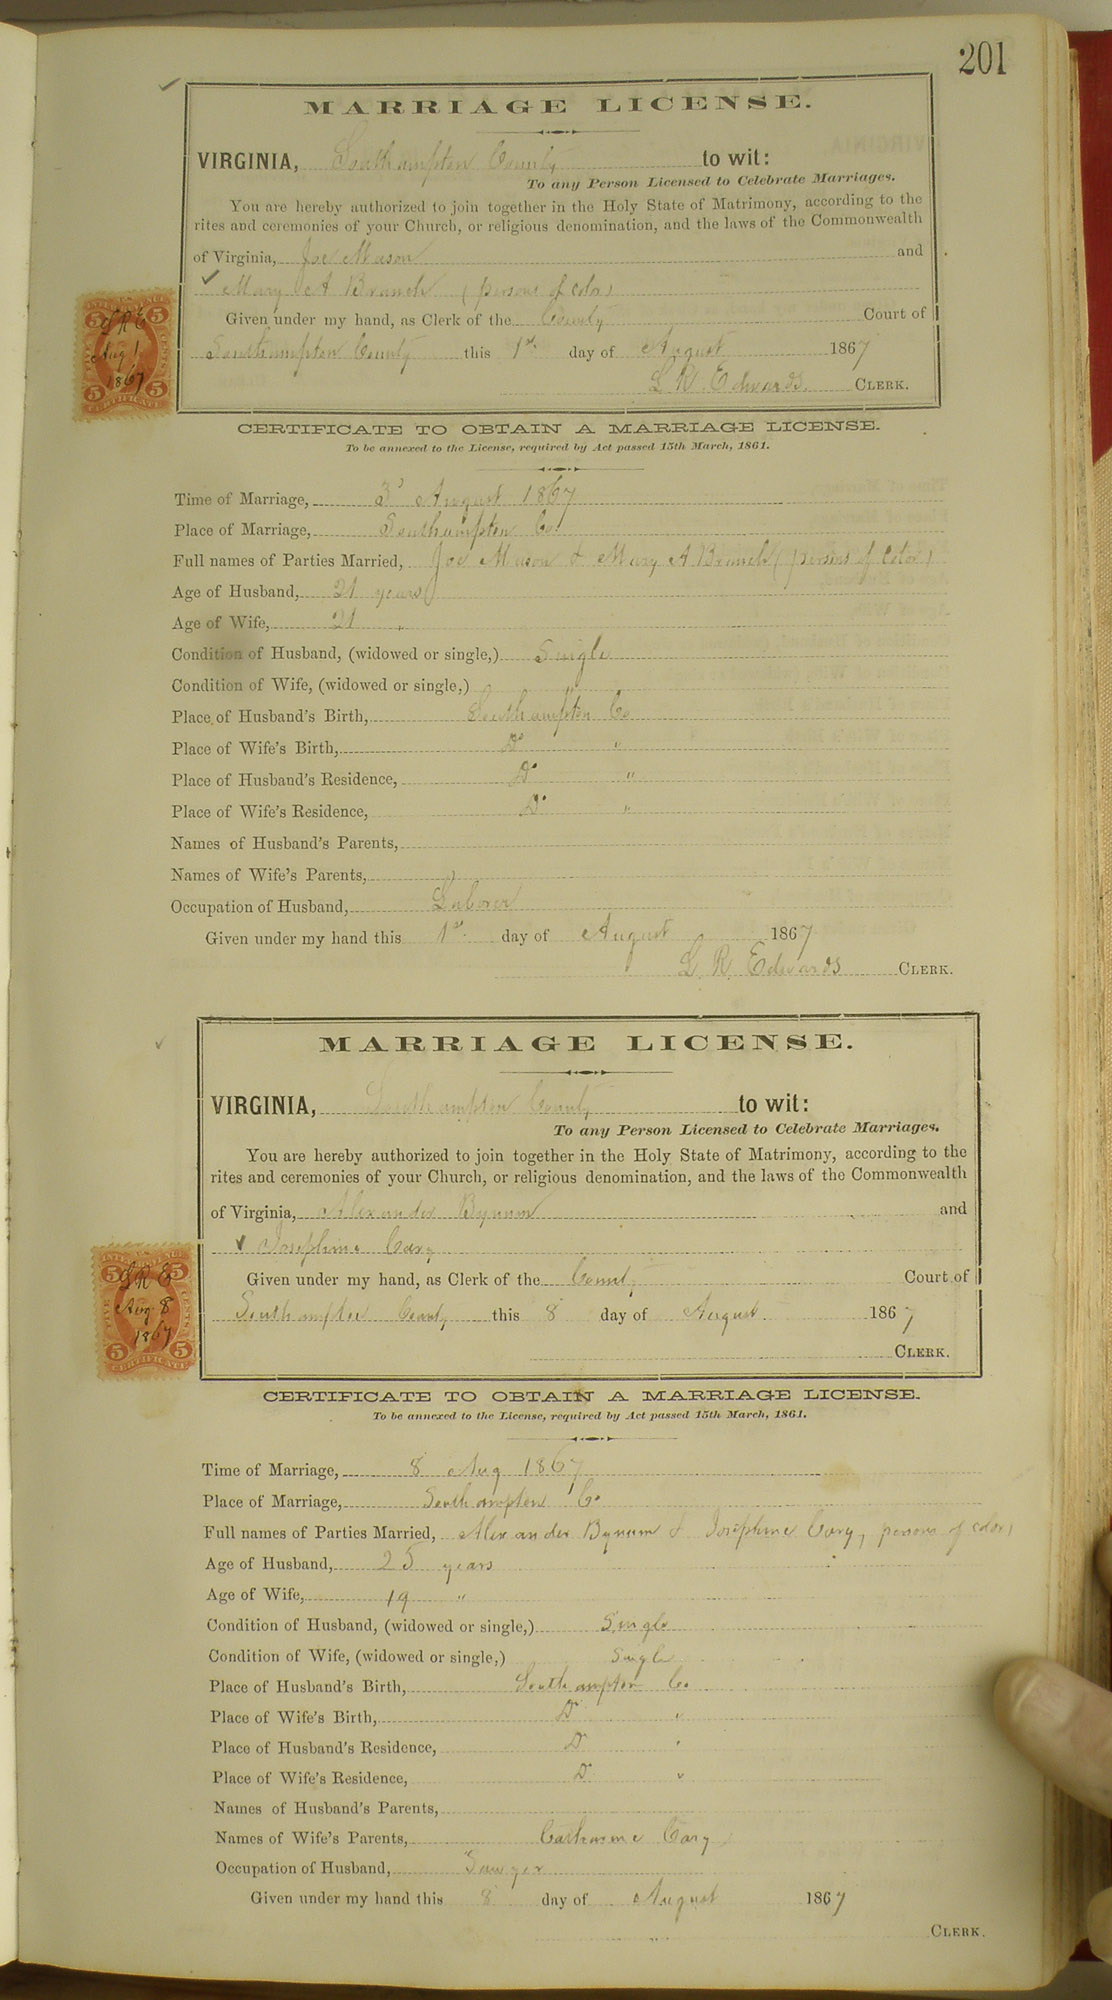 201
MARRIAGE LICENSE.
VIRGINIA, Southampton County to wit:
To any Person Licensed to Celebrate Marriages.
You are hereby authorized to join together in the Holy State of Matrimony, according to the
rites and ceremonies of your Church, or religious denomination, and the laws of the Commonwealth
of Virginia, Joe Mason and
Mary A Branch (persons of color)
Given under my hand, as Clerk of the County Court of
Southampton County this 1st day of August 1867
L R Edwards CLERK.
5 5
L R E
Aug 1
1867
5 5
CERTIFICATE
CERTIFICATE TO OBTAIN A MARRIAGE LICENSE.
To be annexed to the License, required by Act passed 15th March, 1861.
Time of Marriage, 3d August 1867
Place of Marriage, Southampton Co
Full names of Parties Married, Joe Mason & Mary A Branch (persons of Color)
Age of Husband, 21 years
Age of Wife, 21 "
Condition of Husband, (widowed or single,) Single
Condition of Wife, (widowed or single,) "
Place of Husband's Birth, Southampton Co
Place of Wife's Birth, Do "
Place of Husband's Residence, Do "
Place of Wife's Residence, Do "
Names of Husband's Parents,
Names of Wife's Parents,
Occupation of Husband, Laborer
Given under my hand this 1st day of August 1867
L. R. Edwards CLERK.
MARRIAGE LICENSE.
VIRGINIA, Southampton County to wit:
To any Person Licensed to Celebrate Marriages.
You are hereby authorized to join together in the Holy State of Matrimony, according to the
rites and ceremonies of your Church, or religious denomination, and the laws of the Commonwealth
of Virginia, Alexander Bynum and
Josephine Cary
Given under my hand, as Clerk of the County Court of
Southampton County this 8 day of August 1867
CLERK.
5 5
L R E
Aug 8
1867
5 5
CERTIFICATE
CERTIFICATE TO OBTAIN A MARRIAGE LICENSE.
To be annexed to the License, required by Act passed 15th March, 1861.
Time of Marriage, 8 Aug 1867
Place of Marriage, Southampton Co
Full names of Parties Married, Alexander Bynum & Josephine Cary, persons of color)
Age of Husband, 25 years
Age of Wife, 19 "
Condition of Husband, (widowed or single,) Single
Condition of Wife, (widowed or single,) Single
Place of Husband's Birth, Southampton Co
Place of Wife's Birth, Do "
Place of Husband's Residence, Do "
Place of Wife's Residence, Do "
Names of Husband's Parents,
Names of Wife's Parents, Catharine Cary
Occupation of Husband, Sawyer
Given under my hand this 8 day of August 1867
CLERK.